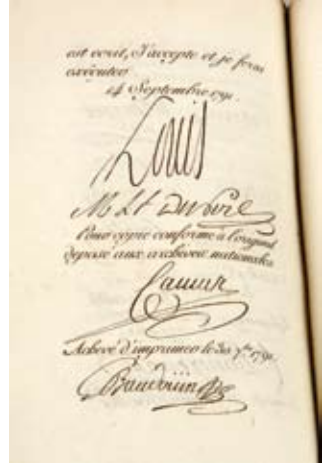 est écrit, J'accepte et je ferai
exécuter
14 Septembre 1791.
Louis
M. L. f. Duport
Pour copie conforme à l'original
déposé aux archives nationales
Camus
Achevé d'imprimer le 7.bre 1791.
Baudouin